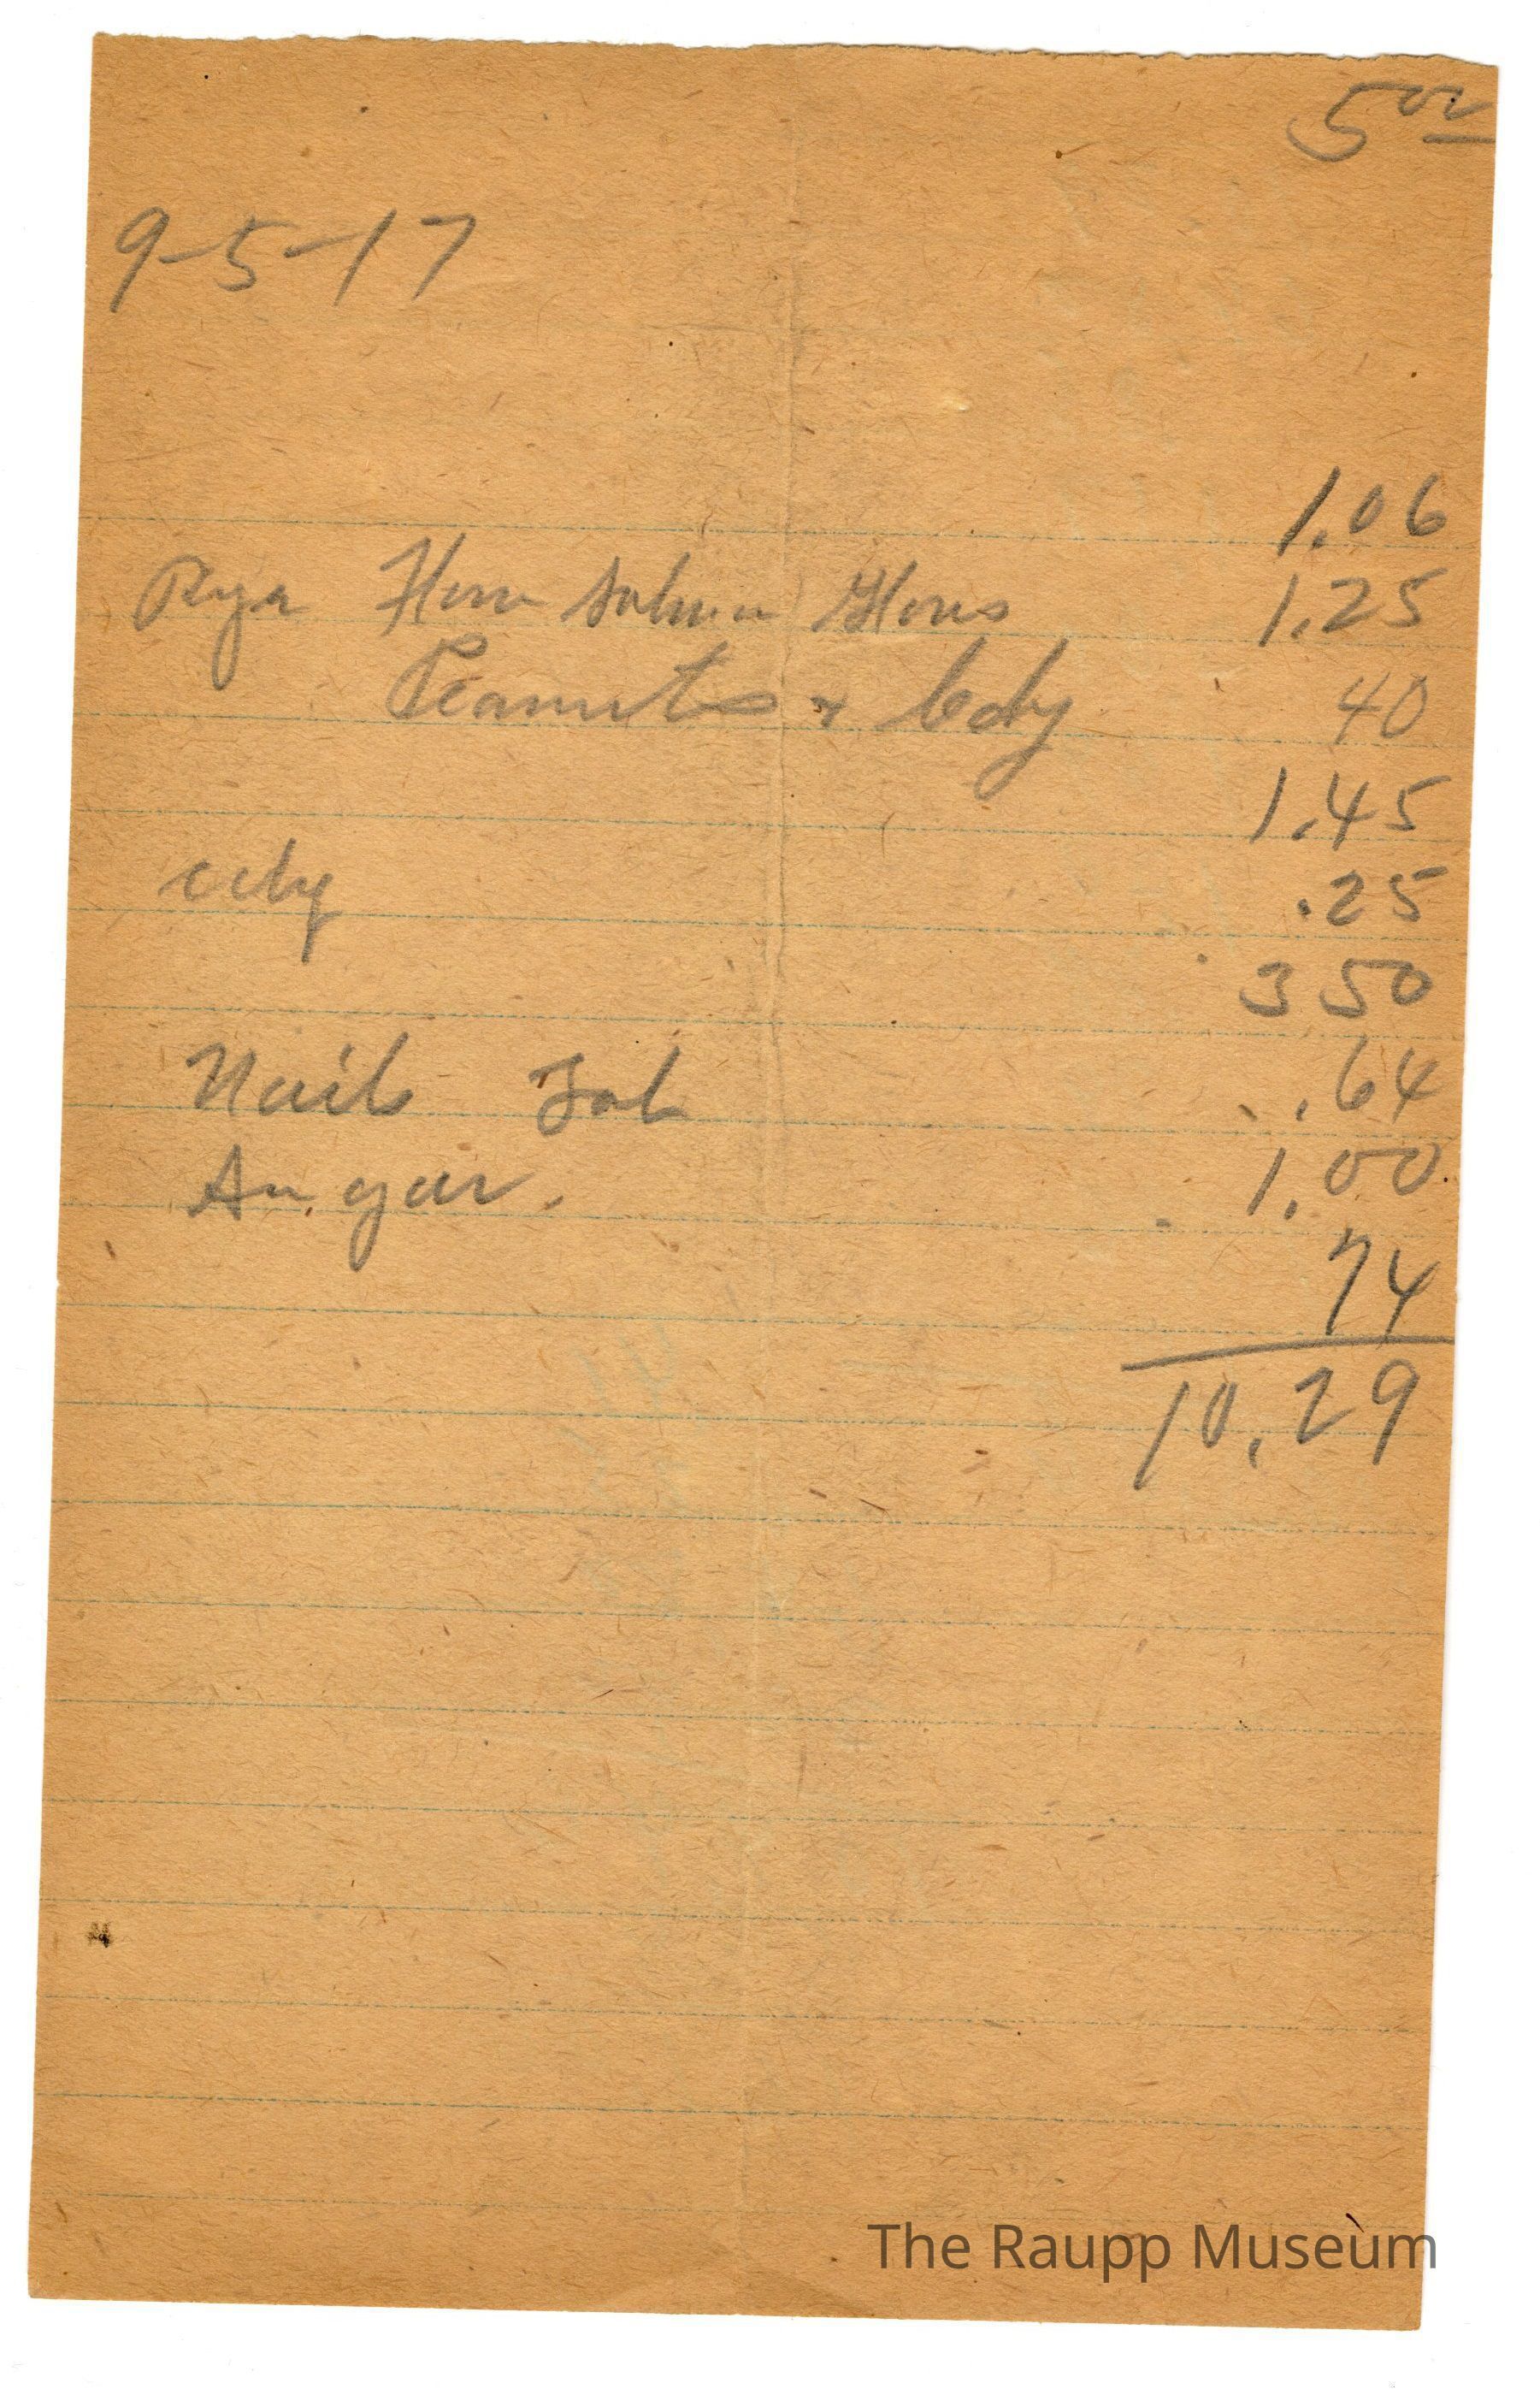 5 00
9-5-17
1.06
Rye Flour Salmon Gloves 1.25
Peanuts + Cdy 40
1.45
cdy .25
3 50
Nails Tob .64
Sugar. 1.00
74
10.29
The Raupp Museum